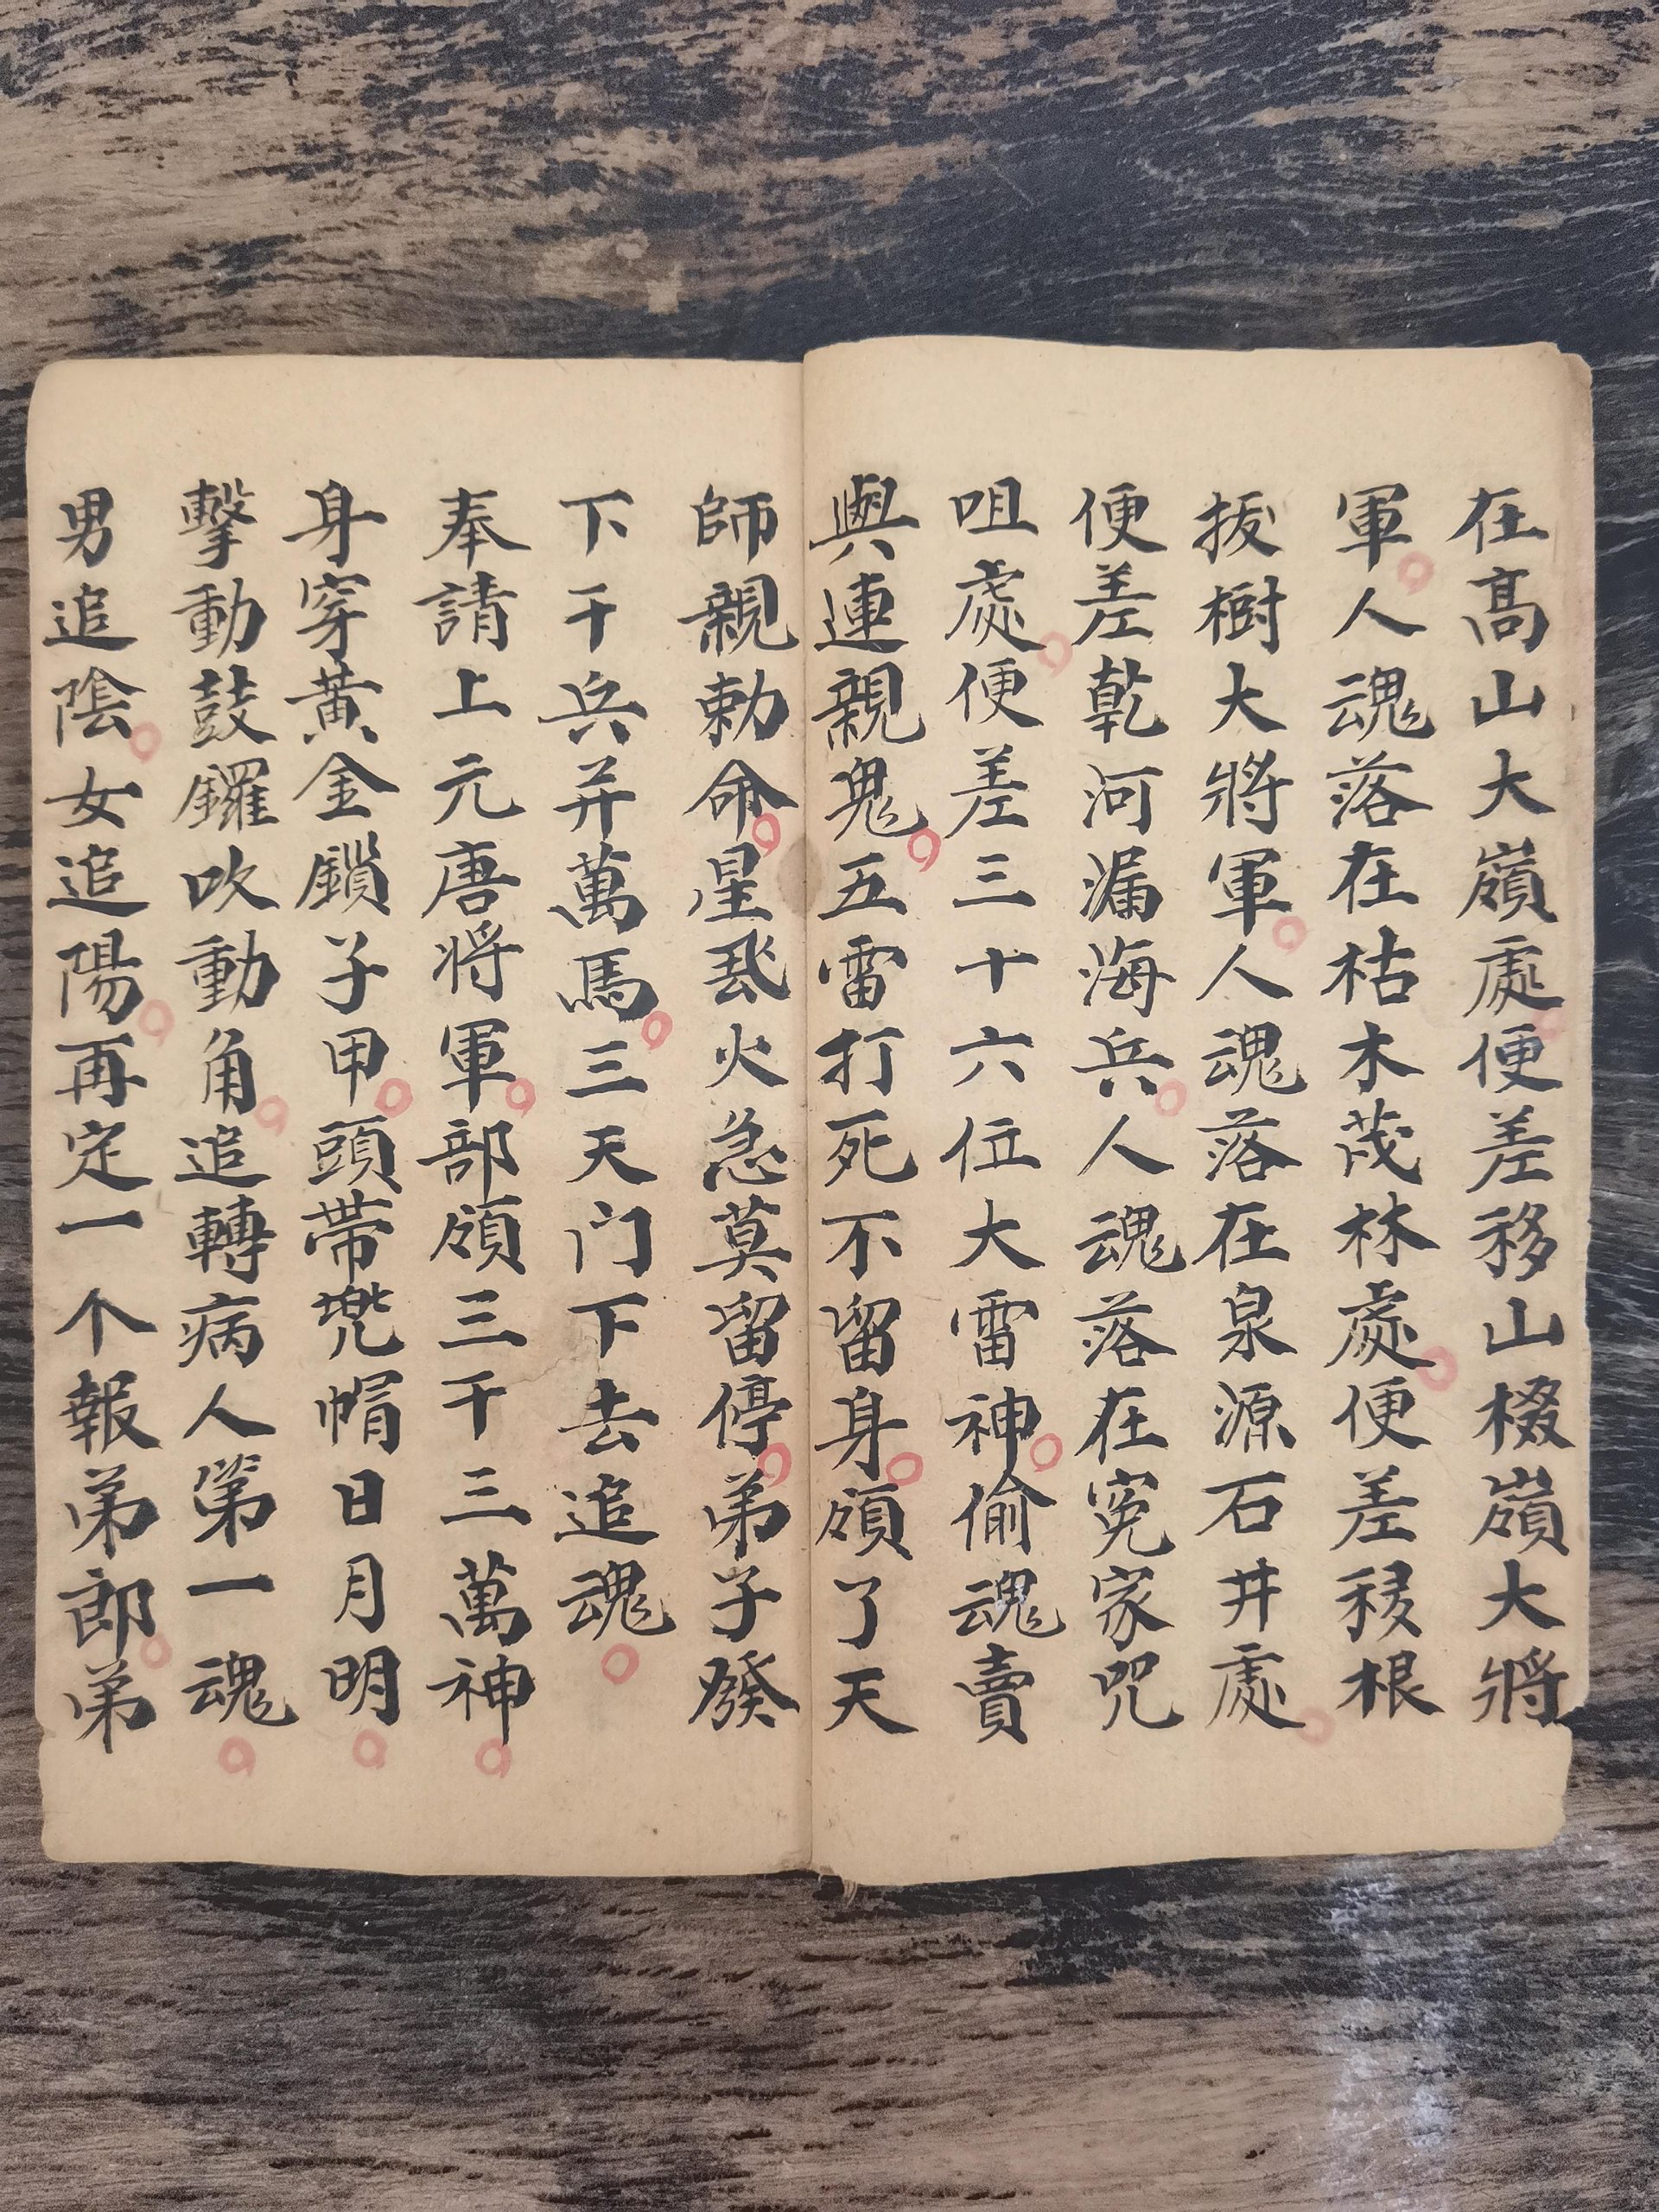 在高山大嶺處便差移山棳嶺大將
軍人魂落在枯木茂林處便差移根
拔樹大將軍人魂落在泉源石井處
便差乾河漏海兵人魂落在寃家咒
咀處便差三十六位大雷神偷魂賣
與連親鬼五雷打死不留身領了天
師親勅命星飛火急莫留停弟子發
下千兵并萬馬三天门下去追魂
奉請上元唐將軍部領三千三萬神
身穿黃金鎖子甲頭帶兜帽日月明
擊動鼓鑼吹動角追轉病人第一魂
男追陰女追陽再定一个報弟郎弟